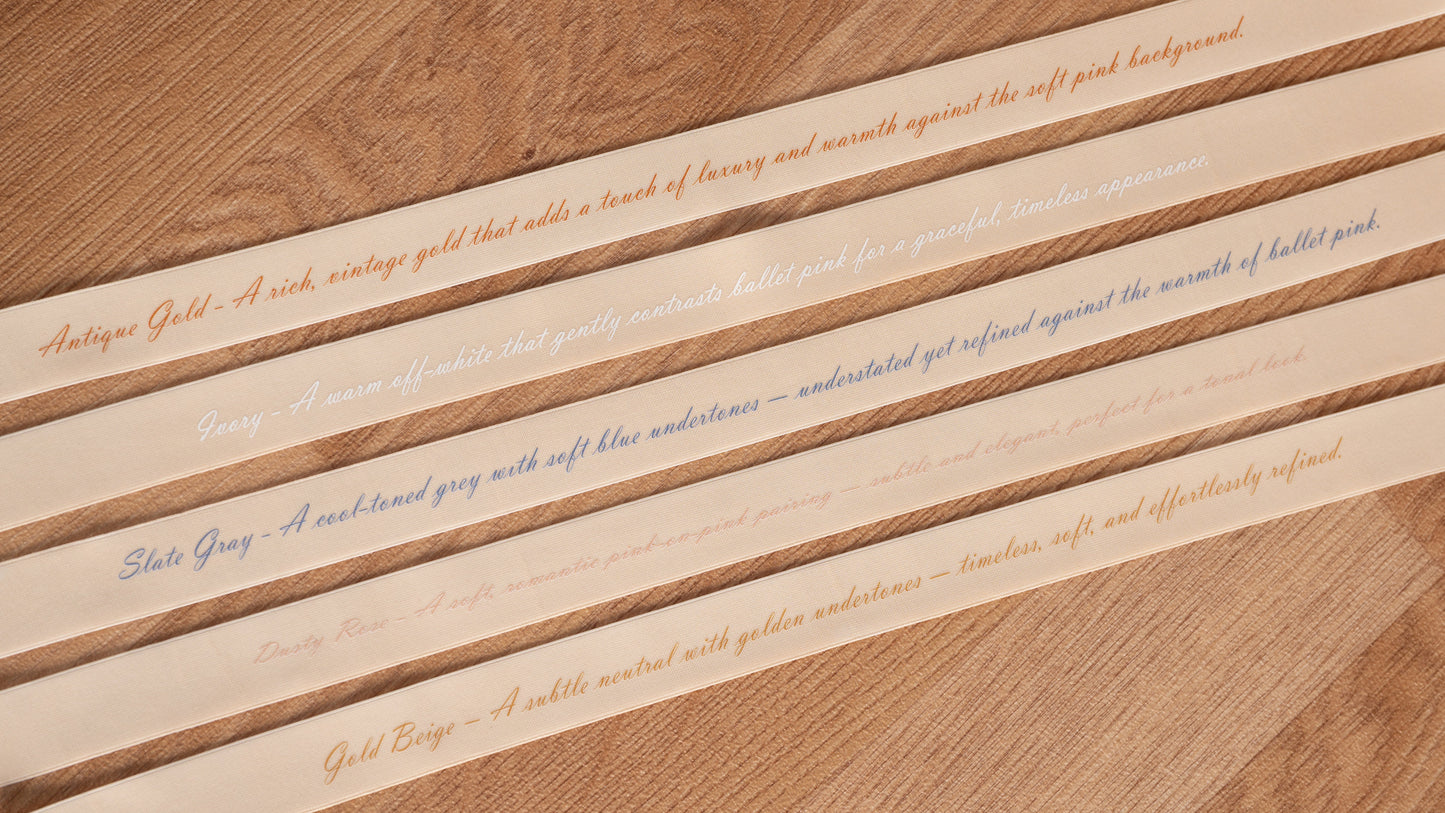 Antique Gold - A rich, vintage gold that adds a touch of luxury and warmth against the soft pink background.
Ivory - A warm off-white that gently contrasts ballet pink for a graceful, timeless appearance.
Slate Gray - A cool-toned grey with soft blue undertones — understated yet refined against the warmth of ballet pink.
Dusty Rose - A soft, romantic pink-on-pink pairing — subtle and elegant, perfect for a tonal look.
Gold Beige — A subtle neutral with golden undertones — timeless, soft, and effortlessly refined.